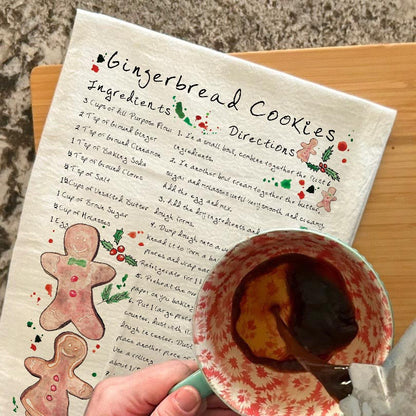 Gingerbread Cookies
Ingredients
3 Cups of All Purpose Flour
2 Tsp of Ground Ginger
2 Tsp of Ground Cinnamon
1 Tsp of Baking Soda
¼ Tsp of Ground Cloves
¼ Tsp of Salt
Cups of Unsalted Butter
Cup of Brown Sugar
Cup of Molasses
1 Egg
Directions
1. In a small bowl, combine together the first 6
ingredients.
2. In another bowl cream together the butter,
sugar and molasses until very smooth and creamy.
Add the egg and mix.
3. Add the dry ingredients and
dough forms.
4. Dump dough onto a
knead it to form a
pieces and wrap each
Refrigerate for 1
5. Preheat the
paper on you baking
6. Put 1 large
counter, dust with
dough in center. Dust
place another piece
Use a rolling
about